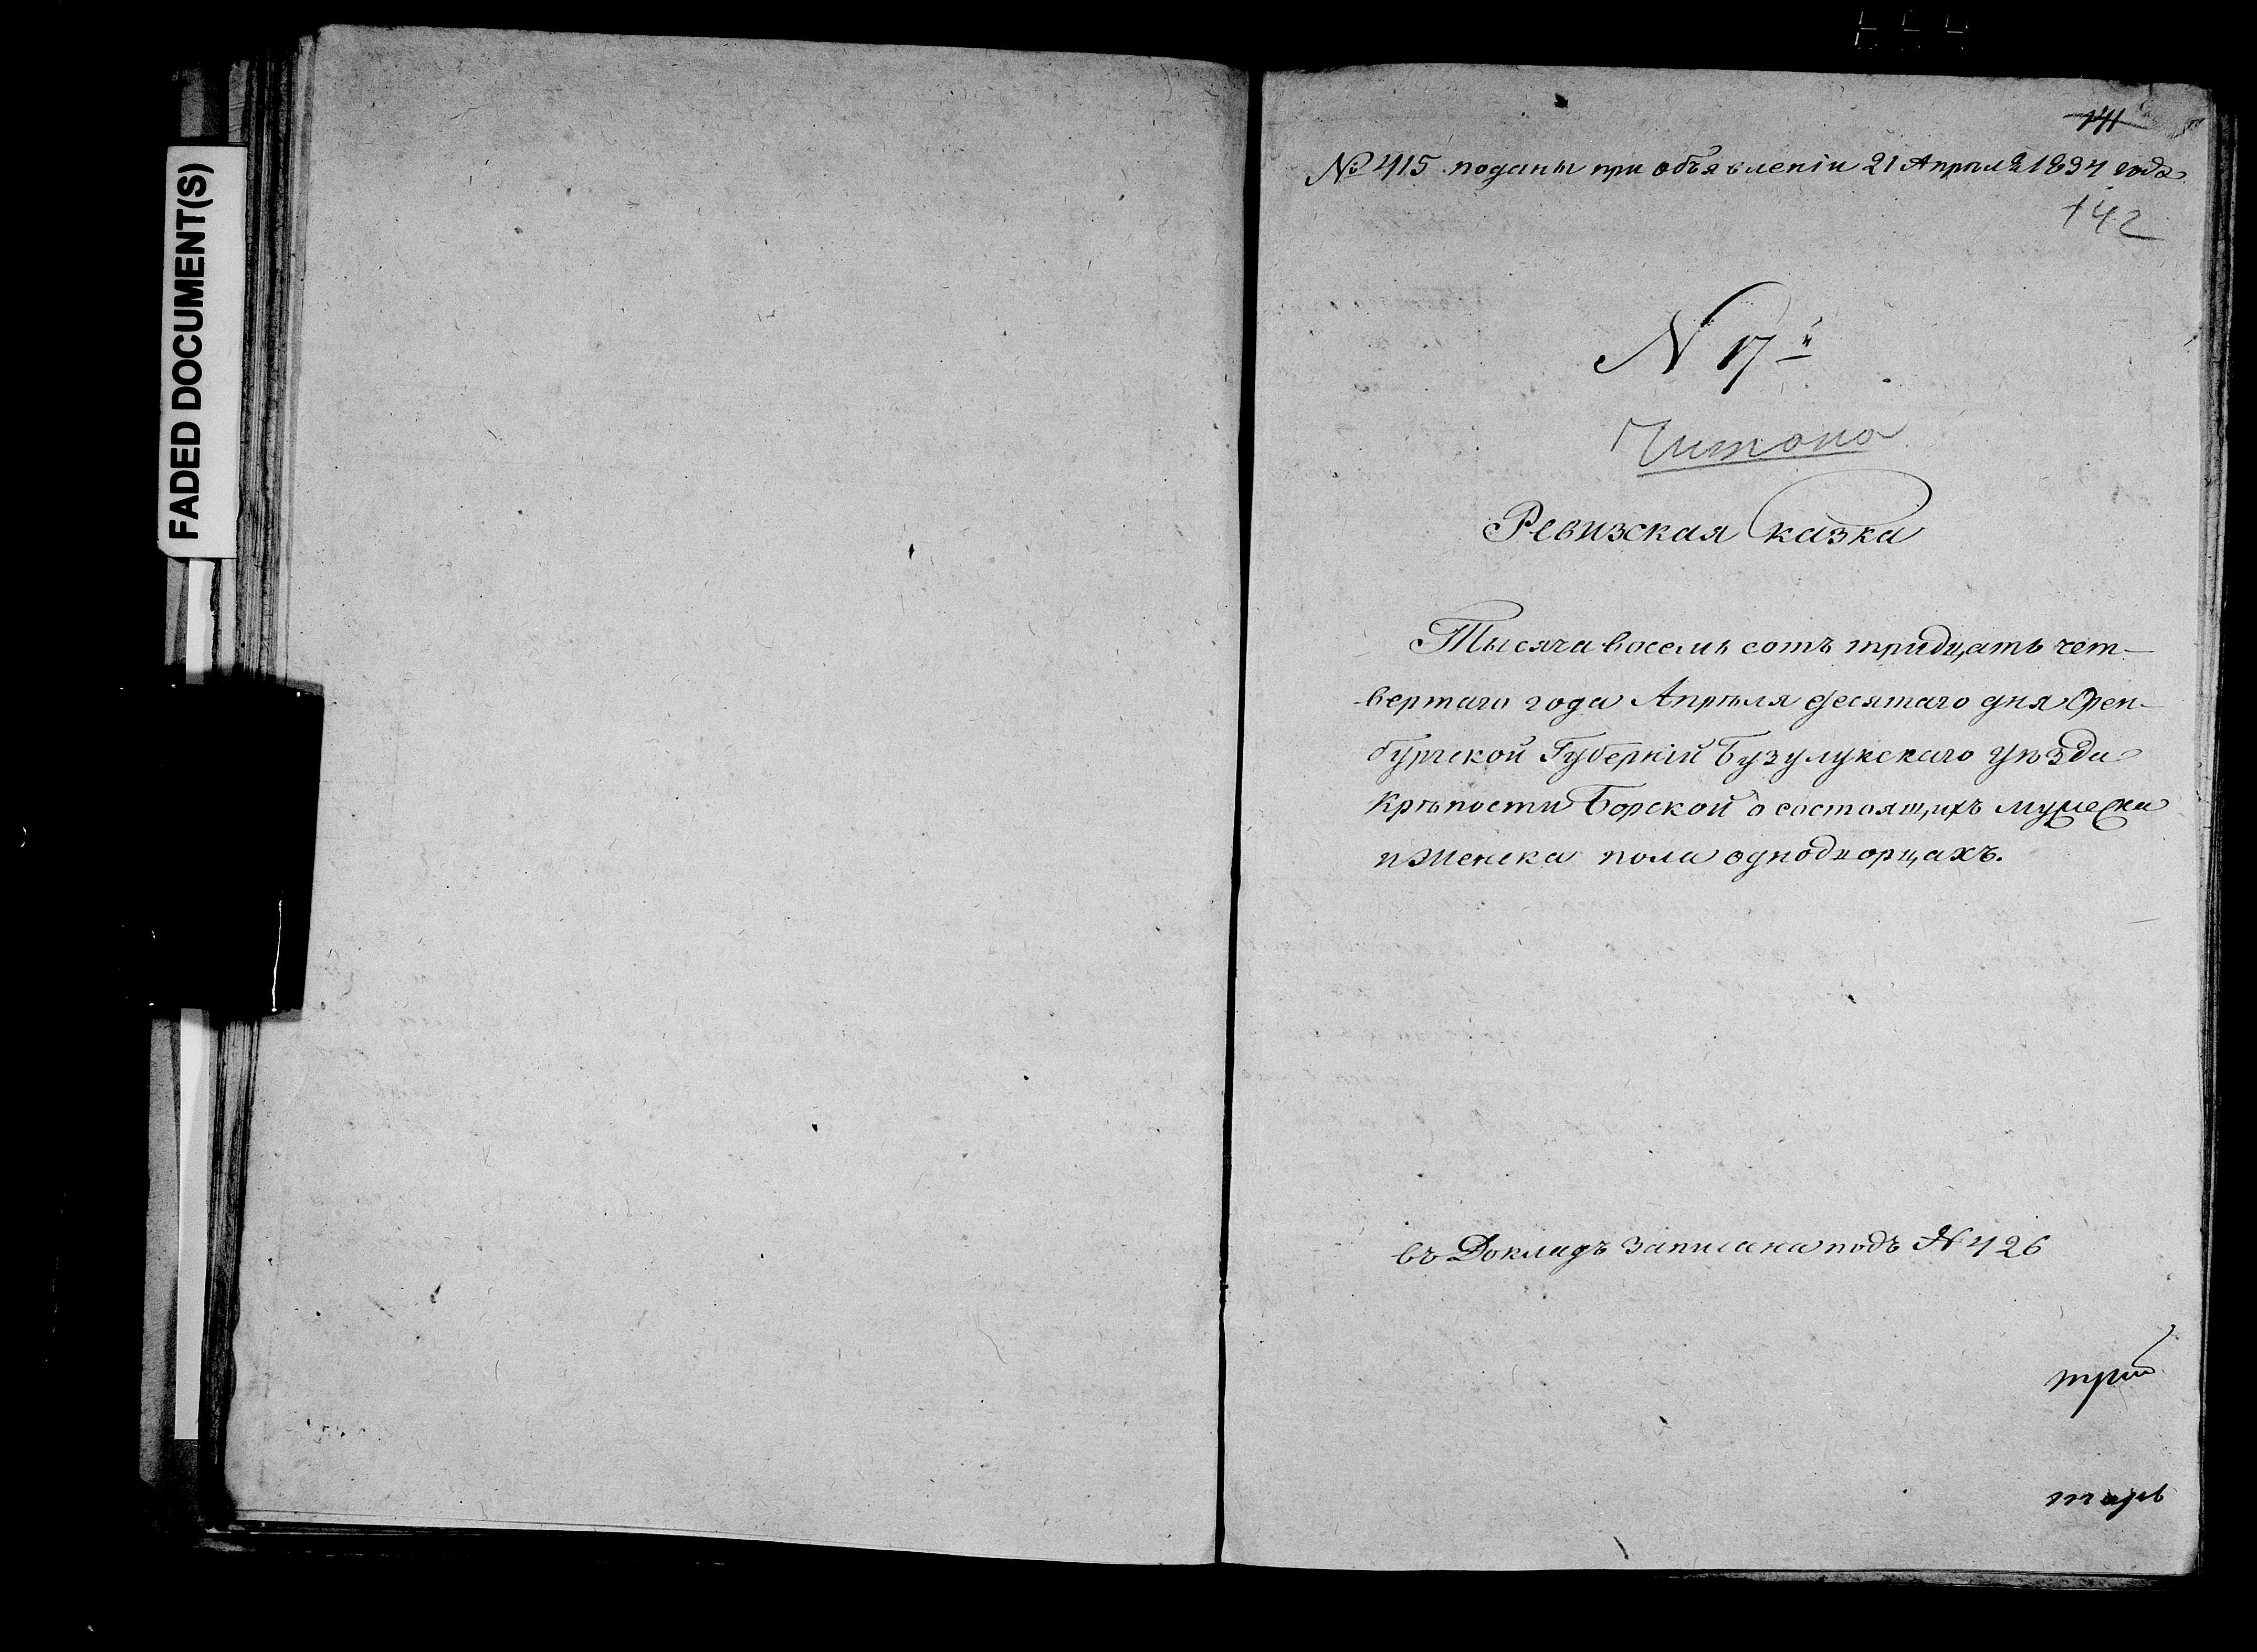 FADED DOCUMENT(S)
141
№ 415 поданы при объявленіи 21 Апрѣля 1834 года
142
N 17й
Читано
Ревизская казка
Тысяча восемь сотъ тридцать чет-
вертаго года Апрѣля десятаго дня Орен-
бургской Губерній Бузулукскаго уѣзда
Крѣпости Борской о состоящихъ мужеска
и женска пола однодворцахъ.
въ Докладъ записана подъ N 426
тарь